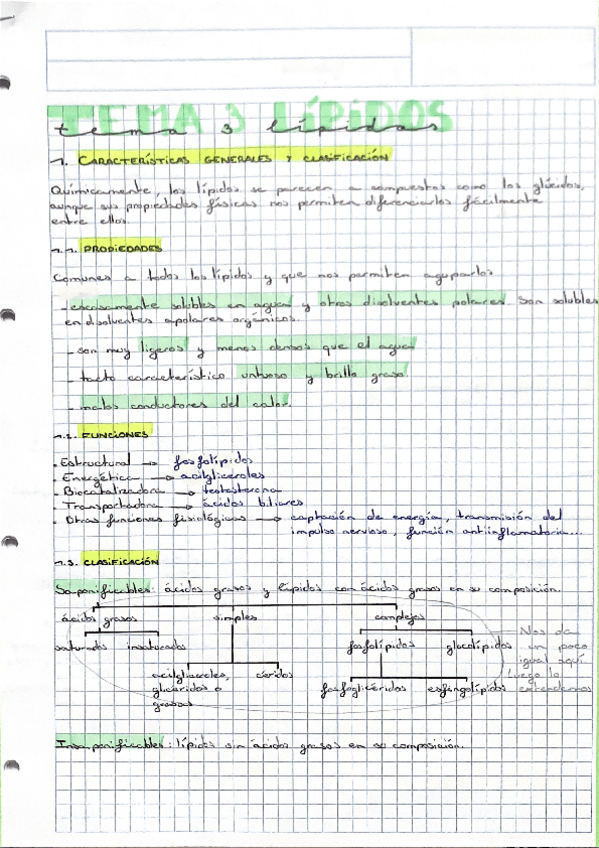 TEMA 3 LÍPIDOS
tema 3 lípidos
1. CARACTERÍSTICAS GENERALES Y CLASIFICACIÓN
Químicamente, los lípidos se parecen a compuestos como los glúcidos,
aunque sus propiedades físicas nos permiten diferenciarlos fácilmente
entre ellos.
1.1. PROPIEDADES
Comunes a todos los lípidos y que nos permiten agruparlos
- escasamente solubles en agua y otros disolventes polares. Son solubles
en disolventes apolares orgánicos.
- son muy ligeros y menos densos que el agua
- tacto característico untuoso y brillo graso.
- malos conductores del calor.
1.2. FUNCIONES
. Estructural → fosfolípidos
. Energética → acilgliceroles
. Biocatalizadora → testosterona
. Transportadora → ácidos biliares
. Otras funciones fisiológicas → captación de energía, transmisión del
impulso nervioso, función antiinflamatoria...
1.3. CLASIFICACIÓN
Saponificables: ácidos grasos y lípidos con ácidos grasos en su composición.
ácidos grasos simples complejos
saturados insaturados fosfolípidos glucolípidos
acilgliceroles, céridos
glicéridos o
grasas
fosfoglicéridos esfingolípidos
Nos da
un poco
igual aquí
luego lo
extendemos
Insaponificables: lípidos sin ácidos grasos en su composición.